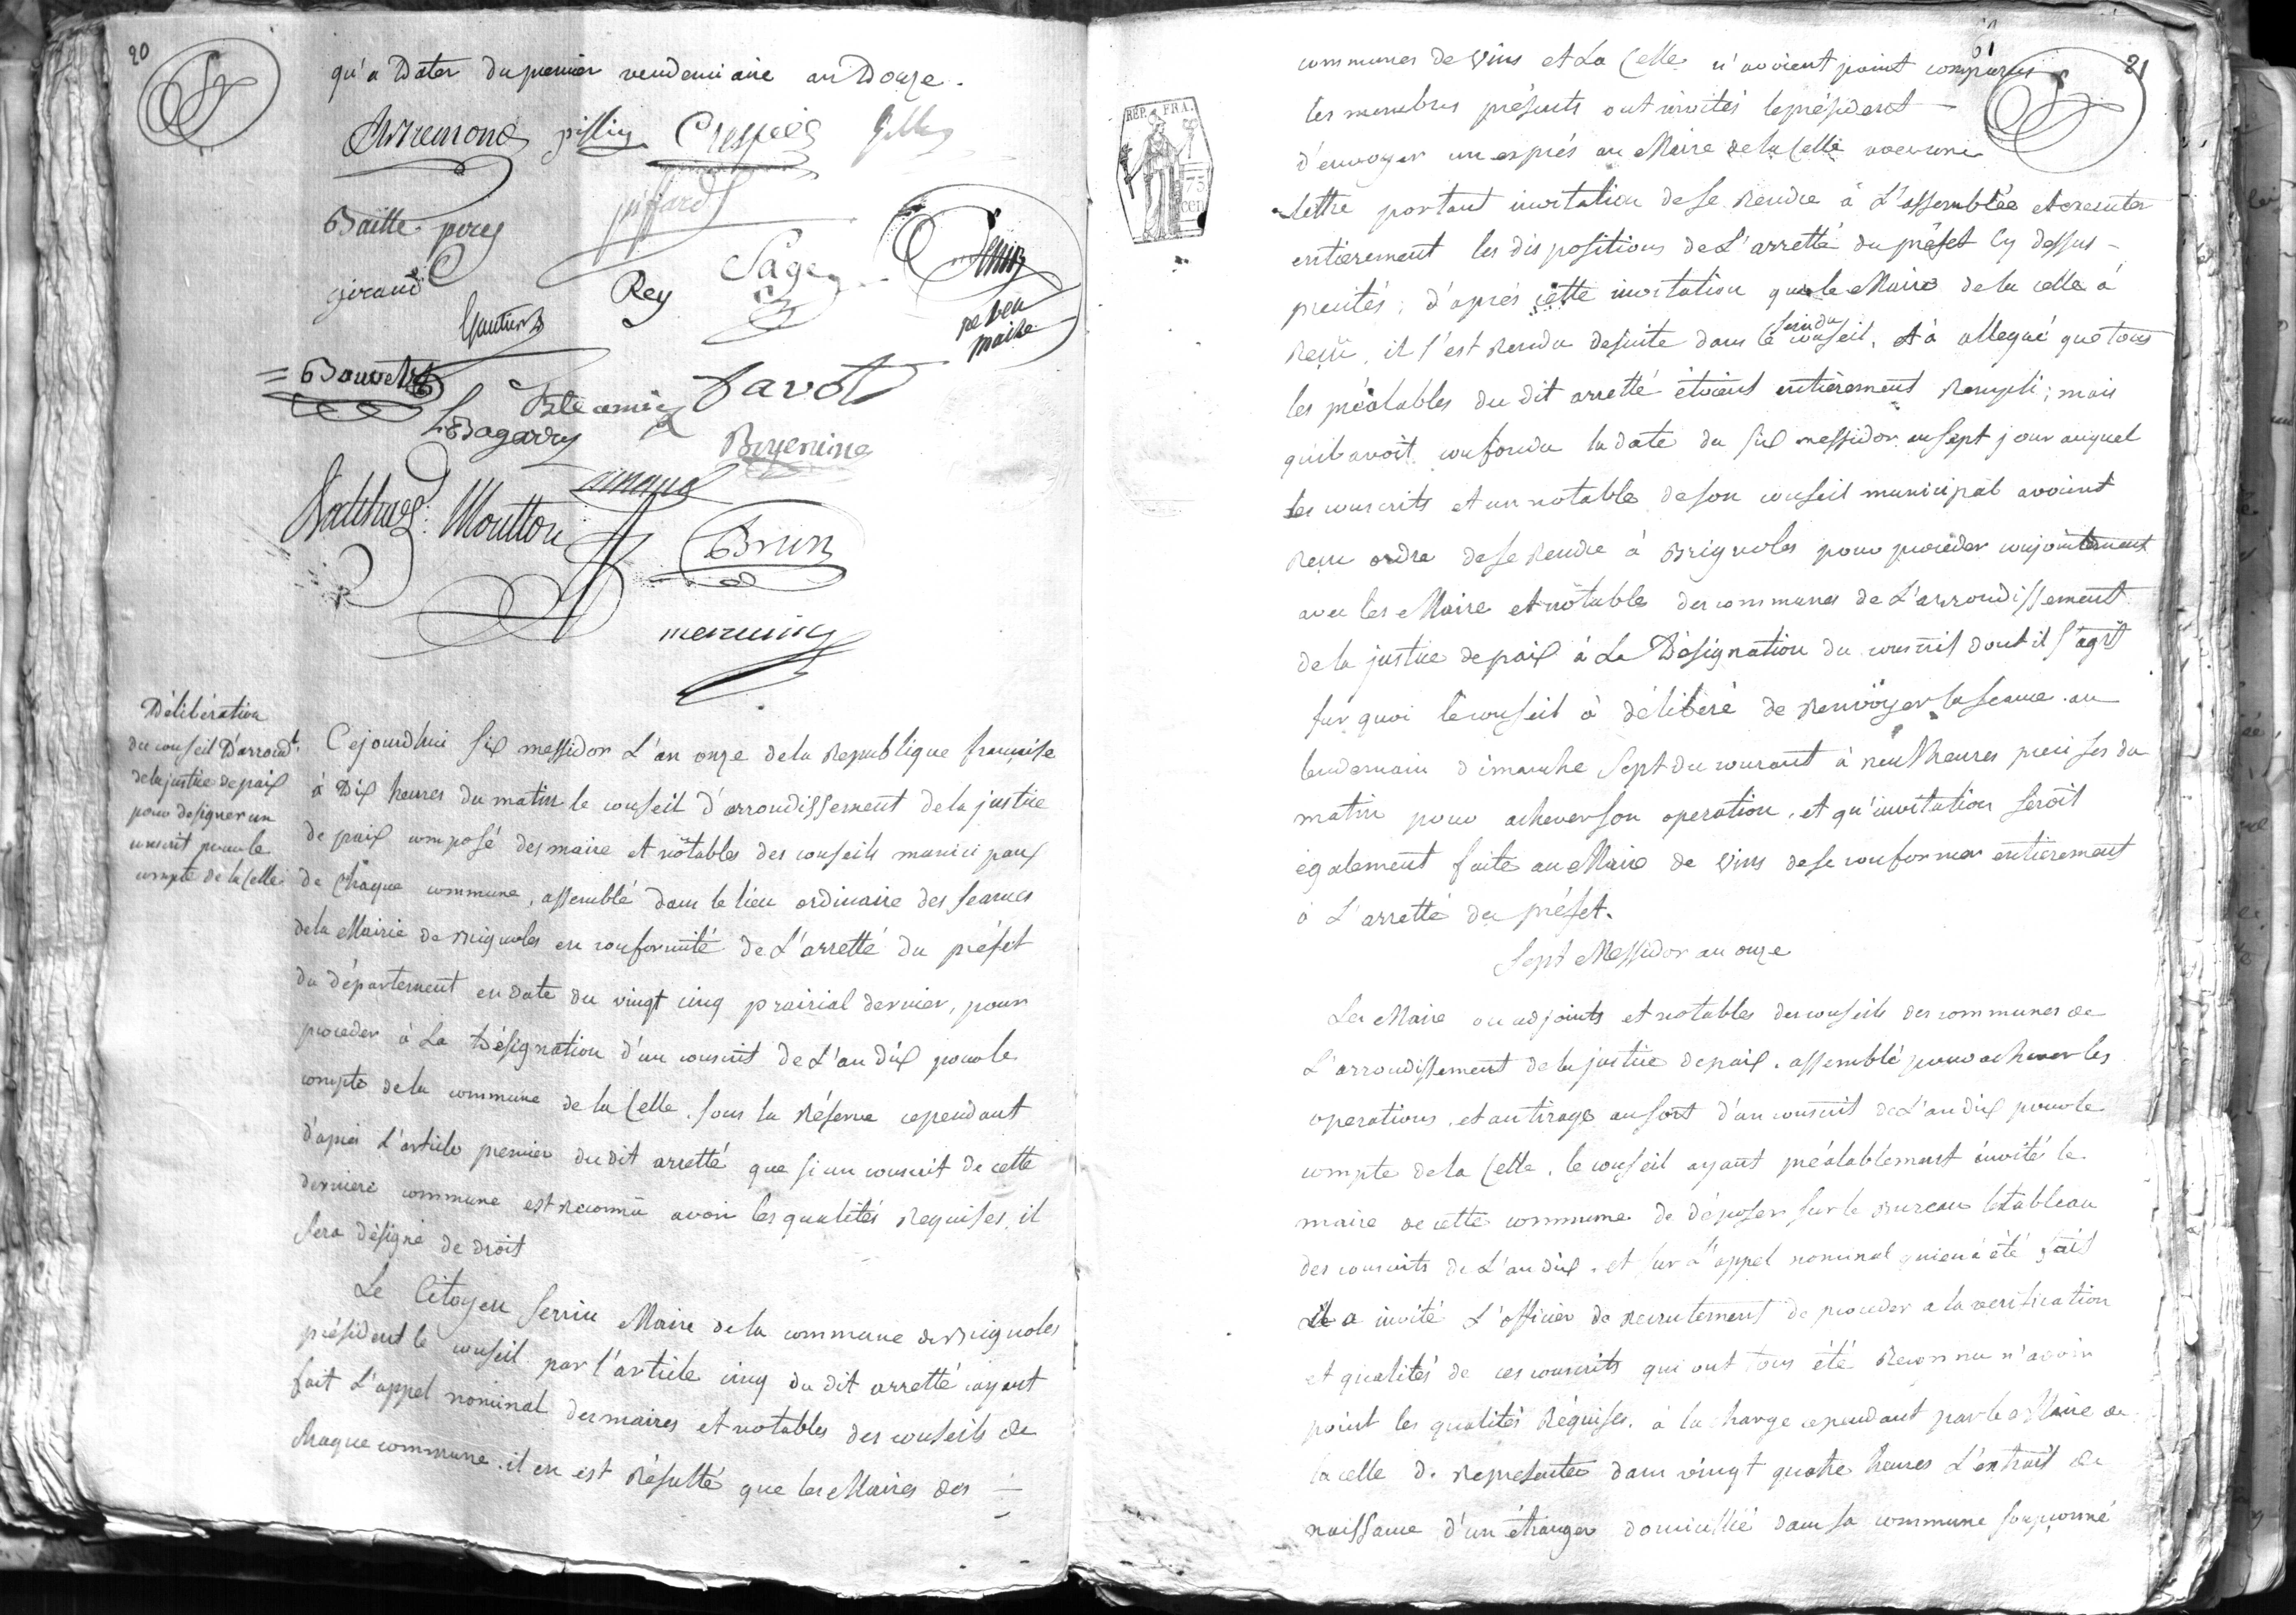 20
qu'a Dater du premier vendemiaire an Douze.
pissin Crespin Gilles
Baille
giraud
Rey
Sage
Serrin
Gautier
maire
Bouvet
Bte amic
Favot
LBagarry
Bremond
arnaud
Moutton
Brun
Délibération
du conseil D'arrondt
de la justice de paix
pour designer un
conscrit pour le
compte de la Celle
Cejourdhui six messidor L'an onze de la Republique française
à Dix heures du matin le conseil d'arrondissement de la justice
de paix composé des maire et nôtables des conseils municipaux
de chaque commune, assemblé dans le lieu ordinaire des seances
de la Mairie de Brignoles en conformité de L'arretté du préfet
du département en date du vingt cinq prairial dernier, pour
proceder à La Désignation d'un conscrit de L'an dix pour le
compte de la commune de la Celle. sous la Réserve cependant
d'aprés L'article premier du dit arretté que si un conscrit de cette
derniere commune est reconnu avoir les qualités Requises, il
sera désigné de droit
Le Citoyen Serrin Maire de la commune de Brignoles
président le conseil par l'article cinq du dit arretté ayant
fait L'appel nominal des maires et notables des conseils de
chaque commune. il en est Résulté que les Maires des
61
21
REP. FRA.
75
cen
communes de Vins et La Celle n'avoient point comparus
les membres présents ont invités le président
d'envoyer un exprés au Maire de la Celle avec une
Lettre portant invitation de se Rendre à L'assemblée et executer
entierement les dispositions de L'arretté du préfet cy dessus
précités; d'aprés cette invitation que le Maire de la celle à
Reçu, il s'est Rendu de suite dans le conseil, et à allegué que tous
les préalables du dit arretté étoient entièrement Rempli; mais
qu'il avoit confondu la date du six messidor au sept jour auquel
les conscrits et un notable de son conseil municipal avoient
Reçu ordre de se Rendre à Brignoles pour proceder conjointement
avec les Maire et nôtables des communes de L'arrondissement
de la justice de paix à La Désignation du conscrit dont il s'agit
sur quoi le conseil à délibéré de Renvoÿer la seance au
lendemain dimanche sept du courant à neuf heures precises du
matin pour achever son operation, et qu'invitation seroit
également faite au Maire de Vins de se conformer entierement
à L'arretté du préfet.
Sept Messidor an onze
Les Maire ou adjoints et notables des conseils des communes de
L'arrondissement de la justice de paix. assemblé pour achever les
operations, et au tirage au sort d'un conscrit de L'an dix pour le
compte de la Celle. le conseil ayant préalablement invité le
maire de cette commune de déposer sur le Bureau le tableau
des conscrits de L'an dix, et sur L'appel nominal qui en à été fait
il a invité L'officier de recrutement de proceder a la verification
et qualités de ces conscrits qui ont tous été Reconnu n'avoir
point les qualités Réquises. à la charge cependant par le Maire de
la celle de Representer dans vingt quatre heures L'extrait de
naissance d'un étranger domicillié dans sa commune soupçonné